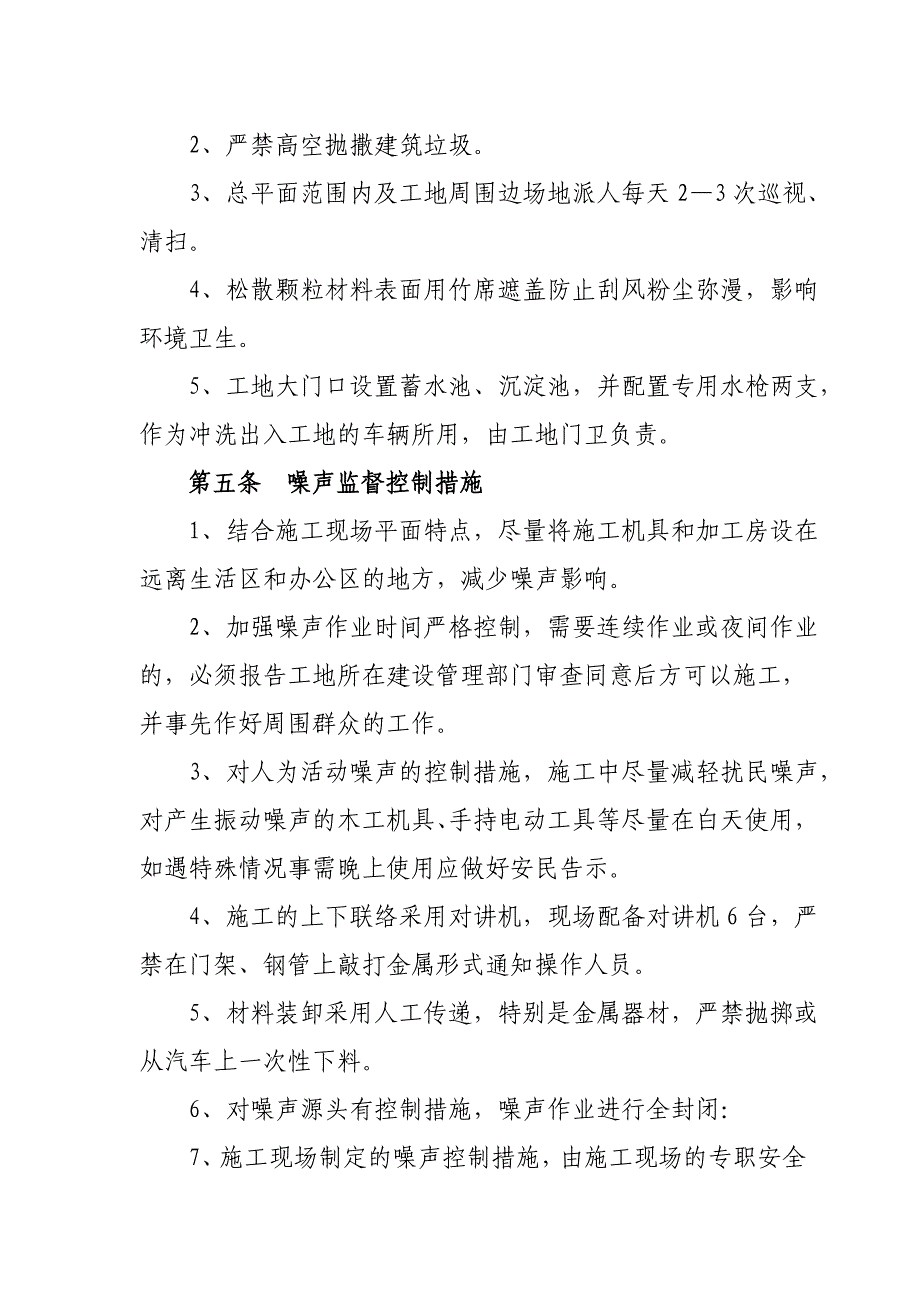 2、严禁高空抛撒建筑垃圾。
3、总平面范围内及工地周围边场地派人每天 2—3 次巡视、
清扫。
4、松散颗粒材料表面用竹席遮盖防止刮风粉尘弥漫，影响
环境卫生。
5、工地大门口设置蓄水池、沉淀池，并配置专用水枪两支，
作为冲洗出入工地的车辆所用，由工地门卫负责。
第五条　噪声监督控制措施
1、结合施工现场平面特点，尽量将施工机具和加工房设在
远离生活区和办公区的地方，减少噪声影响。
2、加强噪声作业时间严格控制，需要连续作业或夜间作业
的，必须报告工地所在建设管理部门审查同意后方可以施工，
并事先作好周围群众的工作。
3、对人为活动噪声的控制措施，施工中尽量减轻扰民噪声，
对产生振动噪声的木工机具、手持电动工具等尽量在白天使用，
如遇特殊情况事需晚上使用应做好安民告示。
4、施工的上下联络采用对讲机，现场配备对讲机 6 台，严
禁在门架、钢管上敲打金属形式通知操作人员。
5、材料装卸采用人工传递，特别是金属器材，严禁抛掷或
从汽车上一次性下料。
6、对噪声源头有控制措施，噪声作业进行全封闭：
7、施工现场制定的噪声控制措施，由施工现场的专职安全